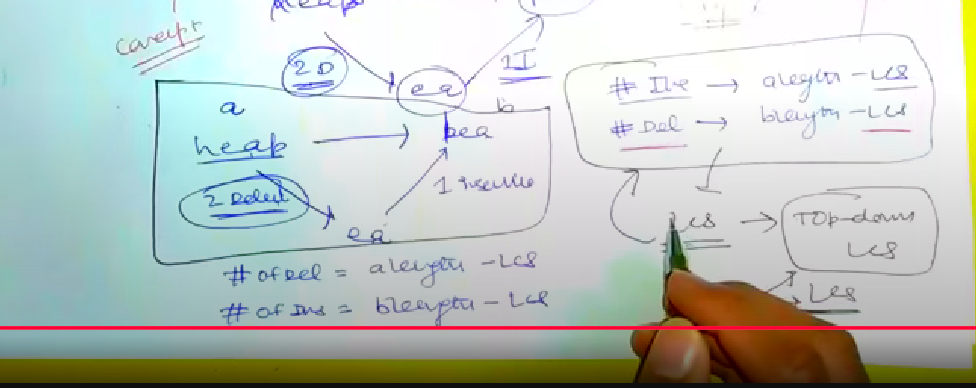 concept
heap
2D
1I
ea
a
b
heap
bea
2 Delet
1 insertion
ea
# of Del = a length - LCS
# of Ins = b length - LCS
# Ins → a length - LCS
# Del → b length - LCS
LCS → Top-down
LCS
LCS